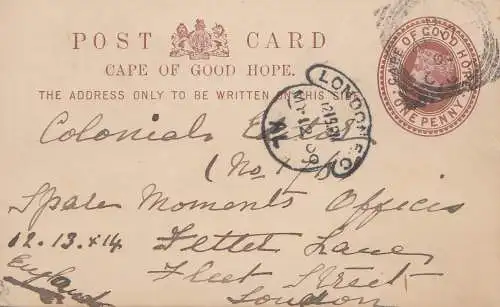 POST CARD
CAPE OF GOOD HOPE.
THE ADDRESS ONLY TO BE WRITTEN ON THIS SIDE
CAPE OF GOOD HOPE
ONE PENNY
LONDON E.C
Colonial
(No.
Spare Moments Offices
12.13.&14 Fetter Lane
Fleet Street
London
England